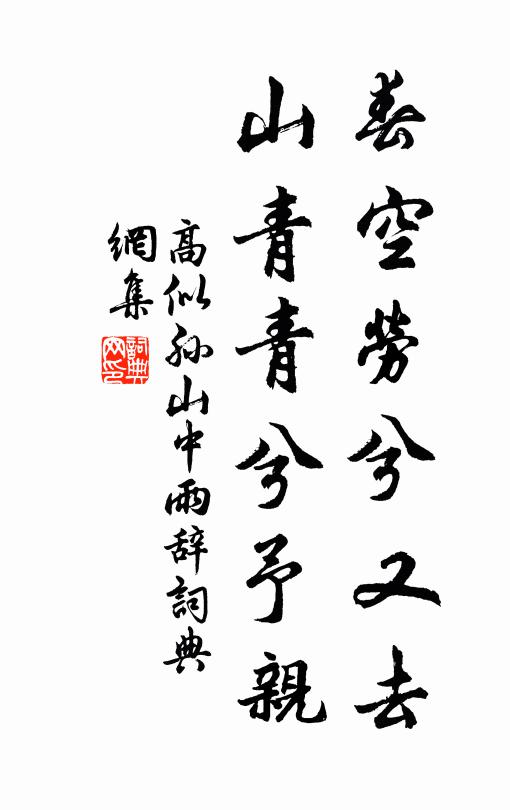 春空勞兮又去
山青青兮予親
高似孫山中雨辞詞典
網集
詞典网印